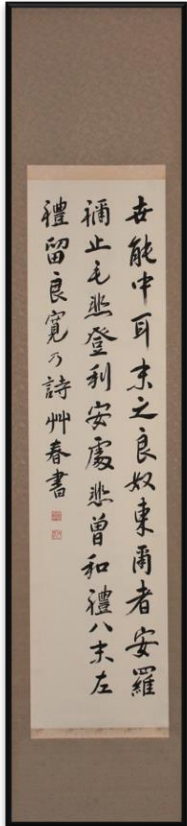 世能中耳末之良奴東爾者安羅
禰止毛悲登利安處悲曽和禮八末左
禮留良寛乃詩艸春書